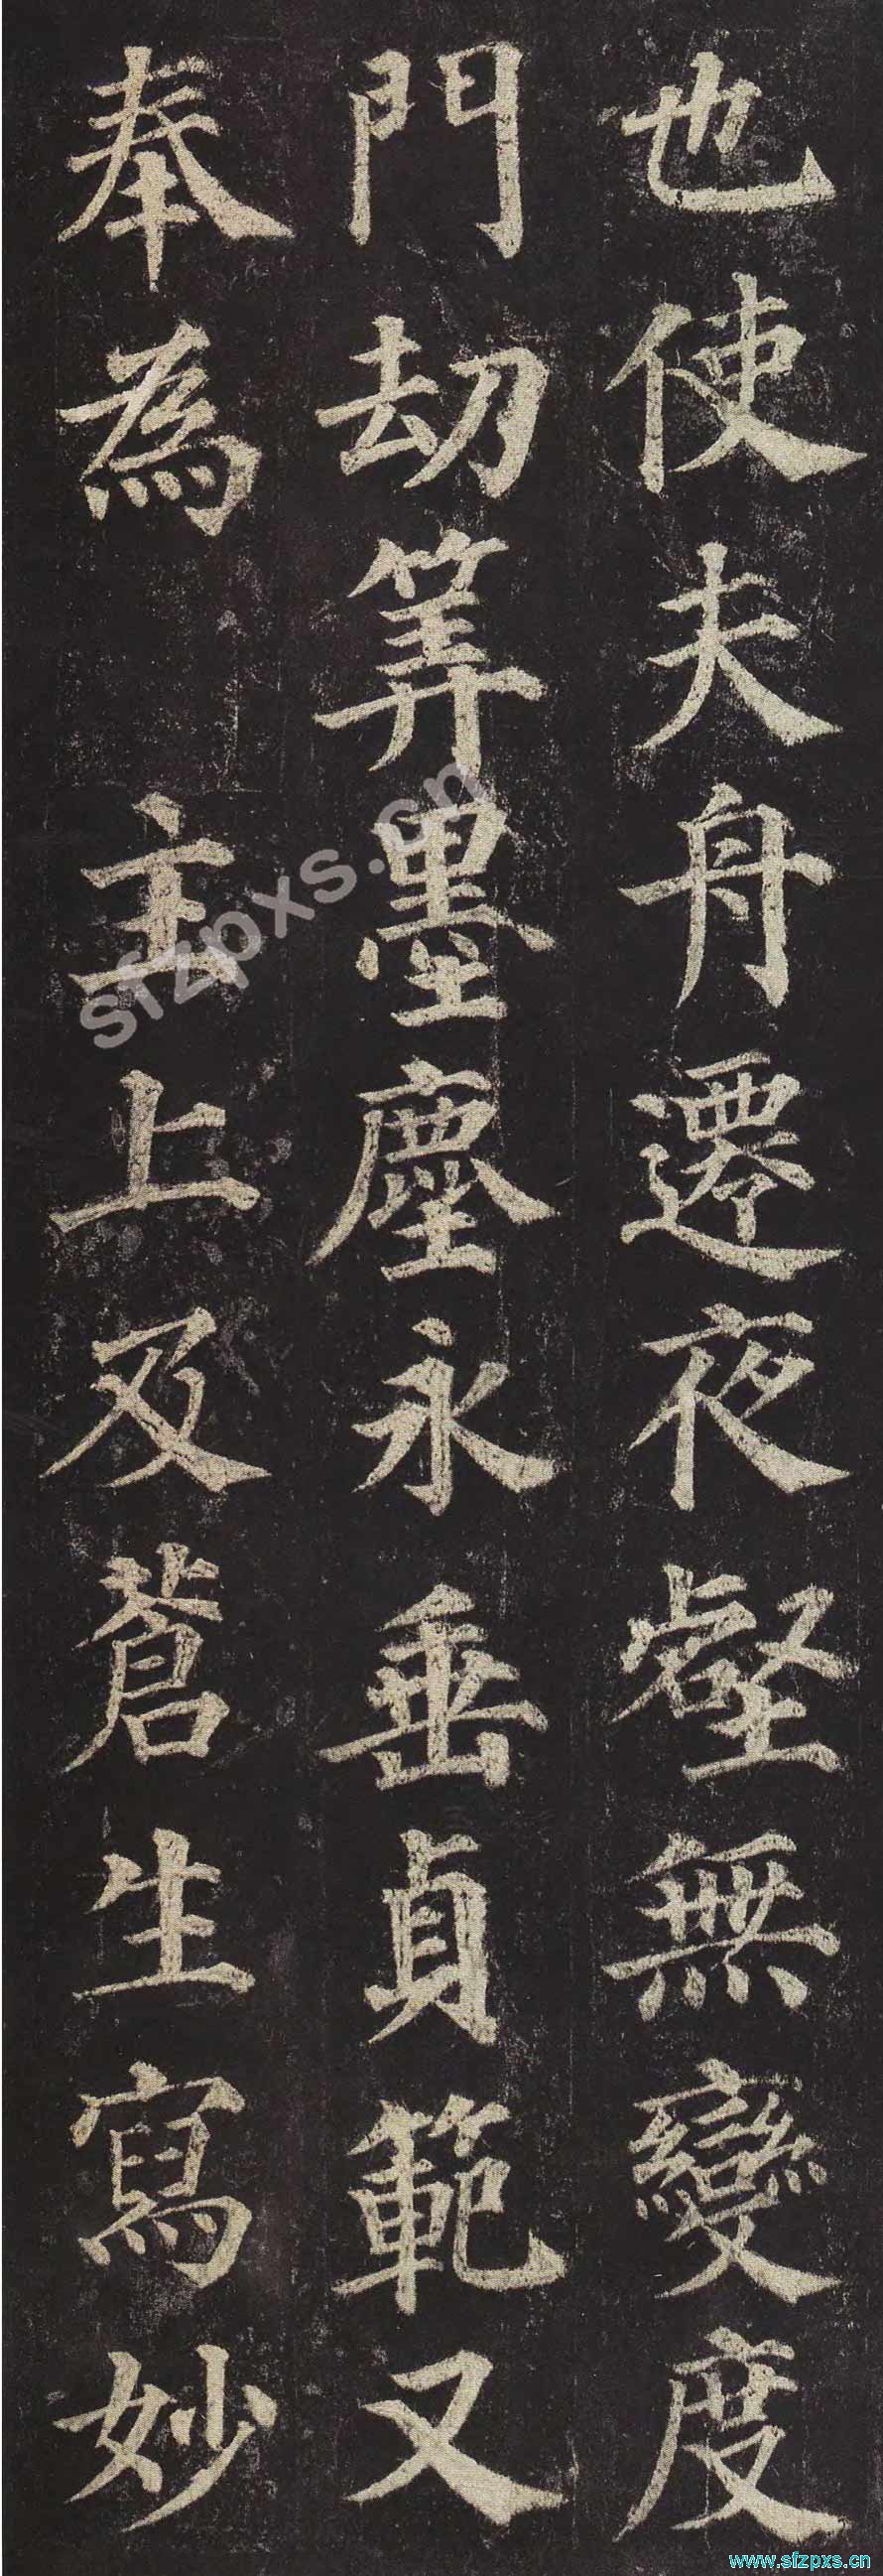 也使夫舟遷夜壑無變度
門劫筭墨塵永垂貞範又
奉為主上及蒼生寫妙
sfzpxs.cn
www.sfzpxs.cn